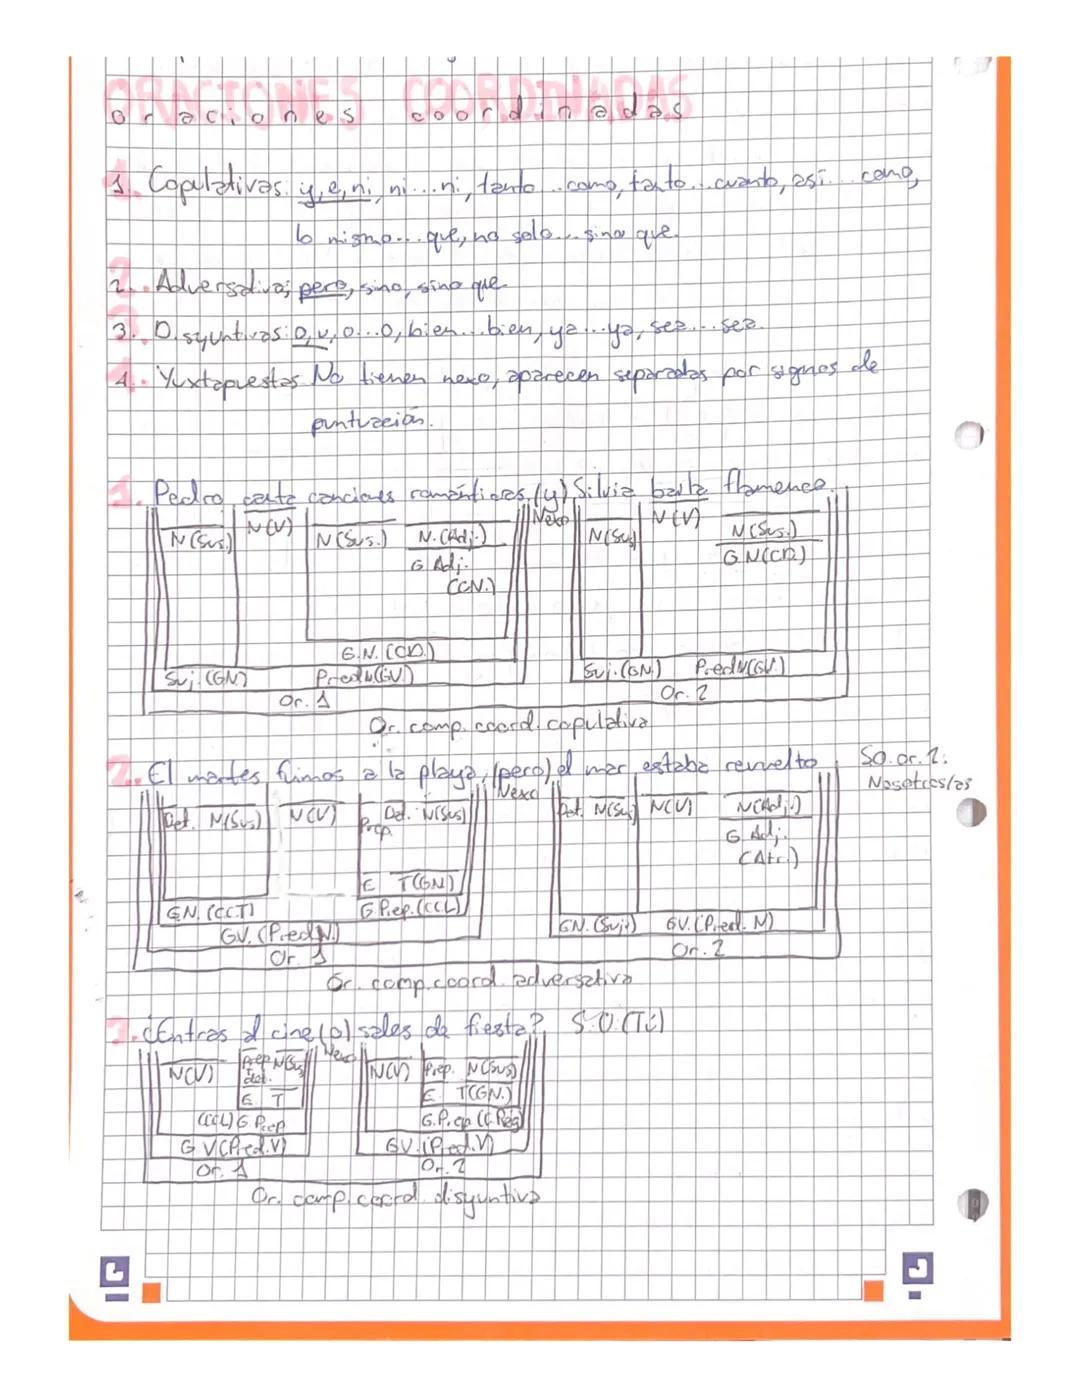 ORACIONES COORDINADAS
oraciones coordinadas
1. Copulativas: y, e, ni, ni...ni, tanto...como, tanto...cuanto, así...como,
lo mismo...que, no solo...sino que.
2. Adversativa; pero, sino, sino que
3. Disyuntivas: o, u, o...o, bien...bien, ya...ya, sea...sea.
4. Yuxtapuestas No tienen nexo, aparecen separadas por signos de
puntuación.
1. Pedro canta canciones románticas, (y) Silvia baila flamenco.
N(Sus.) N(V) N(Sus.) N.(Adj.) Nexo N(Sus) N(V) N(Sus.)
G Adj. G.N(CD.)
(CN.)
G.N.(CD.)
Suj.(GN) PredV(GV.) Suj.(GN.) PredV(GV.)
Or. 1 Or. 2
Or. comp. coord. copulativa
2. El martes fuimos a la playa, (pero) el mar estaba revuelto SO. or. 1:
Nexo Nosotros/as
Det. N(Sus) N(V) Prep. Det. N(Sus) Det. N(Sus) N(V) N(Adj.)
G Adj.
(Atr.)
E T(GN)
G.N. (CCT) G.Prep.(CCL) GN.(Suj.) GV.(Pred. N)
GV.(Pred.N.)
Or. 1 Or. 2
Or. comp. coord. adversativa
3. ¿Entras al cine (o) sales de fiesta? S.O.(Tú)
N(V) Prep N(Sus) Nexo N(V) Prep. N(Sus)
det.
E T E T(GN.)
(CCL) G.Prep G.Prep (C.Reg)
G V(Pred.V) GV.(Pred.V)
Or. 1 Or. 2
Or. comp. coord. disyuntiva